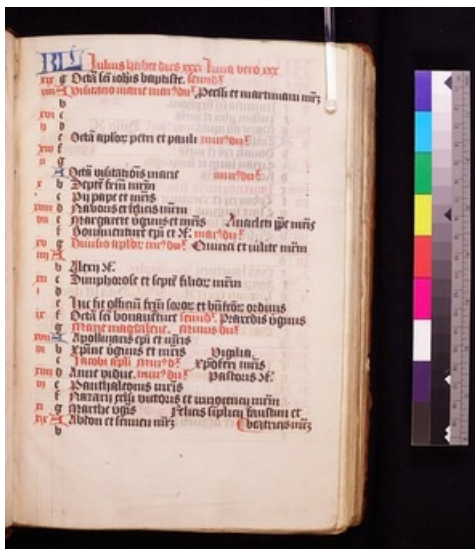 KL Iulius habet dies xxxi Luna vero xxx
xix g Octa sci iohis baptiste. semid
viii A Visitatio marie mai du Processi et martiniani mrz
b
xvi c
v d
e Octa aplor petri et pauli mai du
xiii f
ii g
A Octa visitationis marie mi du
x b Septe frm mrm
c Pij pape et mris
xviii d Naboris et felicis mrm
vii e Margarete vginis et mris Anacleti ppe mris
f Bonaventure epi et
xv g aplor Quirici et iulite mrm
iiii A
b Alexij
xii c Simphorose et septe filior mrm
i d
e Hic fit officiu frm soror et bnfcor ordinis
ix f Octa sci bonaventure semid. Praxedis vginis
g Marie magdalene. minus du
xvii A Apollinaris epi et mris
vi b Xpine vginis et mris Vigilia
c Iacobi apli Xpofori mris
xiiii d Anne vidue. Pastoris
iii e Panthaleonis mris
f Nazarii celsi victoris et innocencii mrm
xi g Marthe vgis Felicis simplicij faustini et
xix A Abdon et sennen mrz Beatricis mrz
b